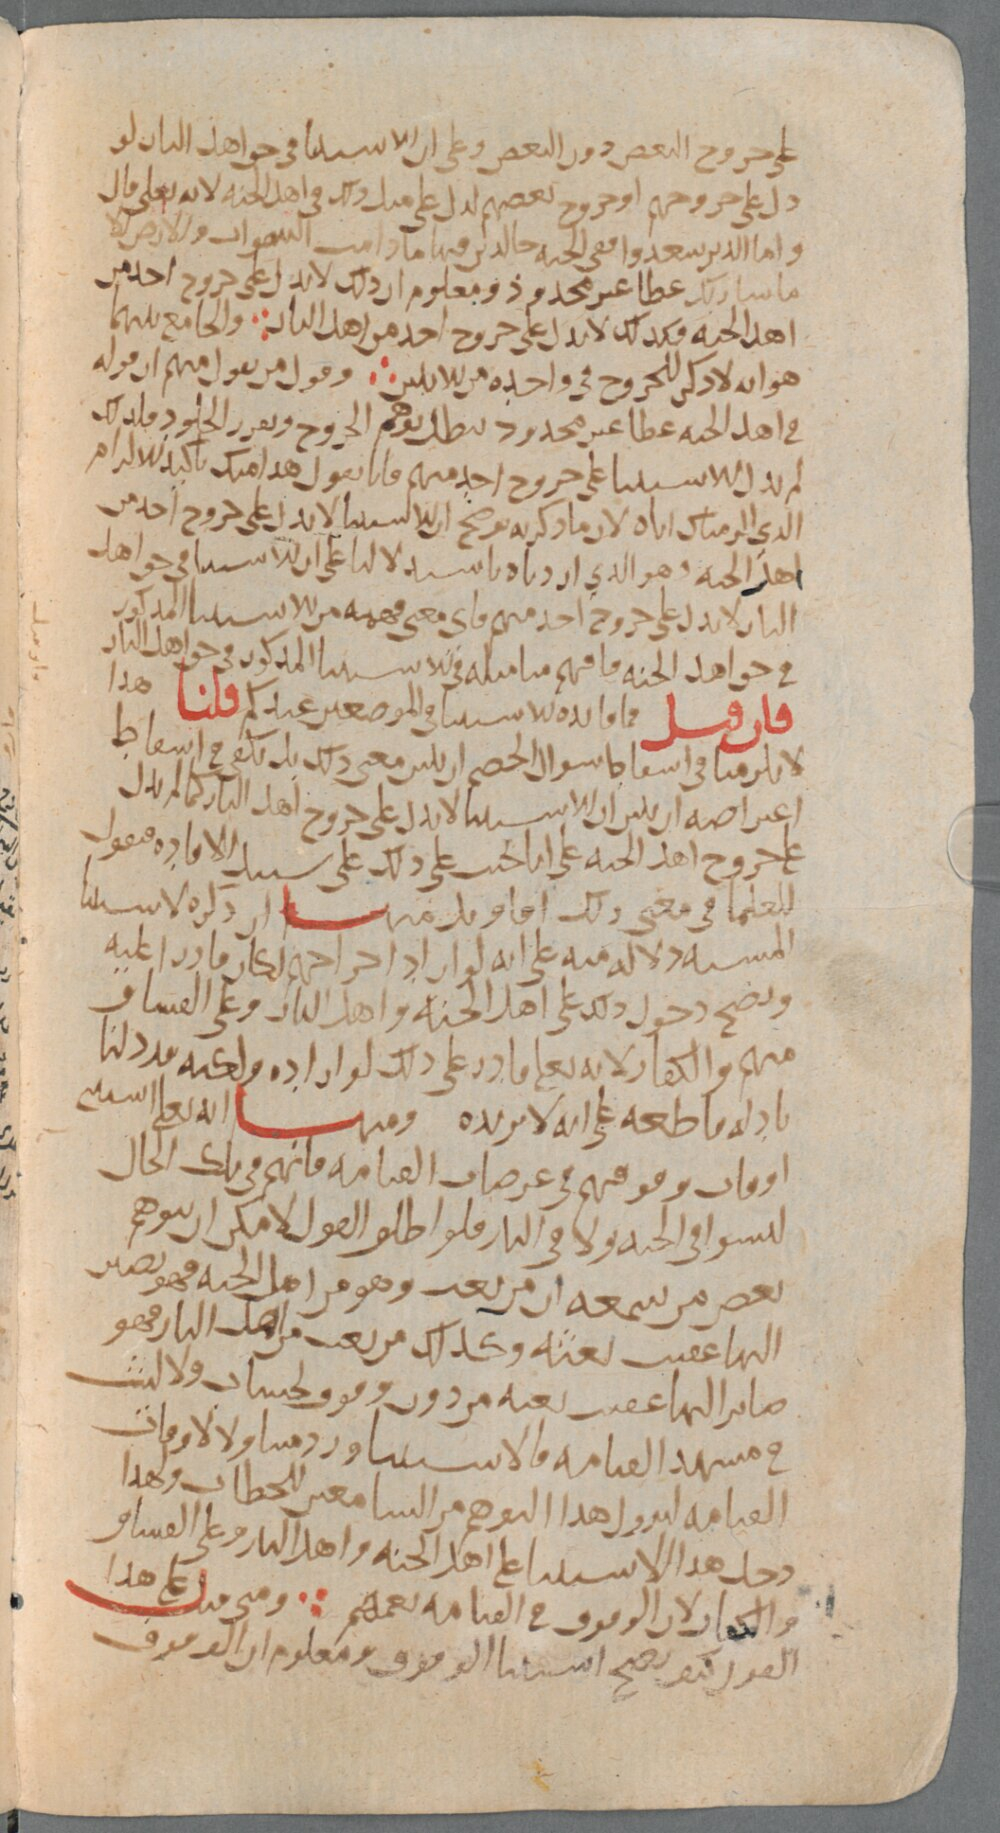 على خروج البعض دون البعض وعلى ان الاستثنا في حق اهل النار لو
دل على خروجهم او خروج بعضهم لدل على مثل ذلك في اهل الجنه لانه تعلى قال
واما الذين سعدوا ففي الجنه خالدين فيها ما دامت السموات والارض الا
ما شا ربك عطا غير مجذوذ ومعلوم ان ذلك لا يدل على خروج احد من
اهل الجنه فكذلك لا يدل على خروج احد من اهل النار والجامع بينهما
هو انه لا ذكر للخروج في واحده من الايتين وقول من يقول منهم ان قوله
في اهل الجنه عطا غير مجدود يبطل توهم الخروج ويقرر الخلود فلذلك
لم يدل الاستثنا على خروج احد منهم فانا نقول هذا منك تاكيد للالزام
الذي الزمناك اياه لان ما ذكرته يوضح ان الاستثنا لا يدل على خروج احد من
اهل الجنه وهو الذي اردناه باستدلالنا على ان الاستثنا في حق اهل
النار لا يدل على خروج احد منهم فاي معنى فهمته من الاستثنا المذكور
في حق اهل الجنه فافهم منا مثله في الاستثنا المذكور في حق اهل النار
فان قيل فما فائده الاستثنا في الموضعين عندكم قلنا هذا
لا يلزمنا في اسقاط سوال الخصم ان نبين معنى ذلك بل يكفي في اسقاط
اعتراضه ان نبين ان الاستثنا لا يدل على خروج اهل النار كما لم يدل
على خروج اهل الجنه على انا نجيب على ذلك على سبيل الافاده فنقول
للعلما في معنى ذلك اقاويل منها ان ذكره لاستثنا
المشيه دلاله منه على انه لو اراد اخراجهم لكان قادرا عليه
ويصح دخول ذلك على اهل الجنه واهل النار وعلى الفساق
منهم والكفار لانه تعلى قادر على ذلك لو اراده ولكنه قد دلنا
بادله قاطعه على انه لا يريده ومنها انه تعلى استثنى
اوقات وقوفهم في عرصات القيامه فانهم في تلك الحال
ليسوا في الجنه ولا في النار فلو اطلق القول لامكن ان يتوهم
بعض من سمعه ان من بعث وهو من اهل الجنه فهو يصير
اليها عقيب بعثه وكذلك من بعث من اهل النار فهو
صاير اليها عقيب بعثه من دون وقوف لحساب ولا لبث
في مشهد القيامه فالاستثنا ورد متناولا لاوقات
القيامه ليزول هذا التوهم من السامعين للخطاب ولهذا
دخل هذا الاستثنا على اهل الجنه واهل النار وعلى الفساق
والكفار لان الوقوف في القيامه يعمهم ومتى قيل على هذا
القول كيف يصح استثنا الوقوف ومعلوم ان الوقوف